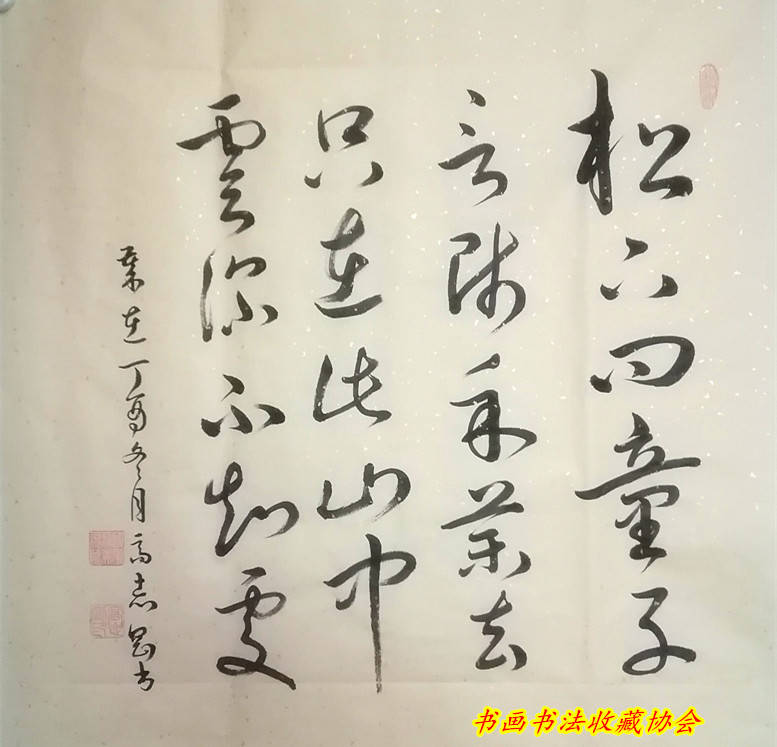 松下问童子
言师采药去
只在此山中
雲深不知处
岁在丁酉冬月高志书
书画书法收藏协会